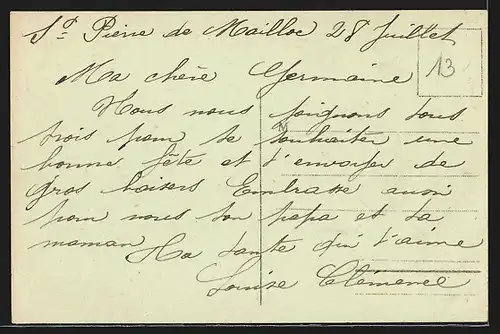 St Pierre de Mailloc 28 Juillet
13
Ma chère Germaine
Nous nous joignons tous
trois pour te souhaiter une
bonne fête et t'envoyer de
gros baisers Embrasse aussi
pour nous ton papa et ta
maman
Ta tante qui t'aime
Louise